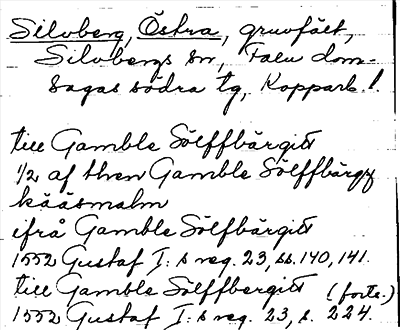 Silvberg, Östra, gruvfält,
Silvbergs sn, Falu dom-
sagas södra tg, Kopparb. l.
till Gamble Sölffbärgitt
1/2 af then Gamble Sölffbärgz
kååsmalm
ifrå Gamble Sölfbärgitt
1552 Gustaf I:s reg. 23, ss. 140, 141.
till Gamble Sölffbergitt (forts.)
1552 Gustaf I:s reg. 23, s. 224.